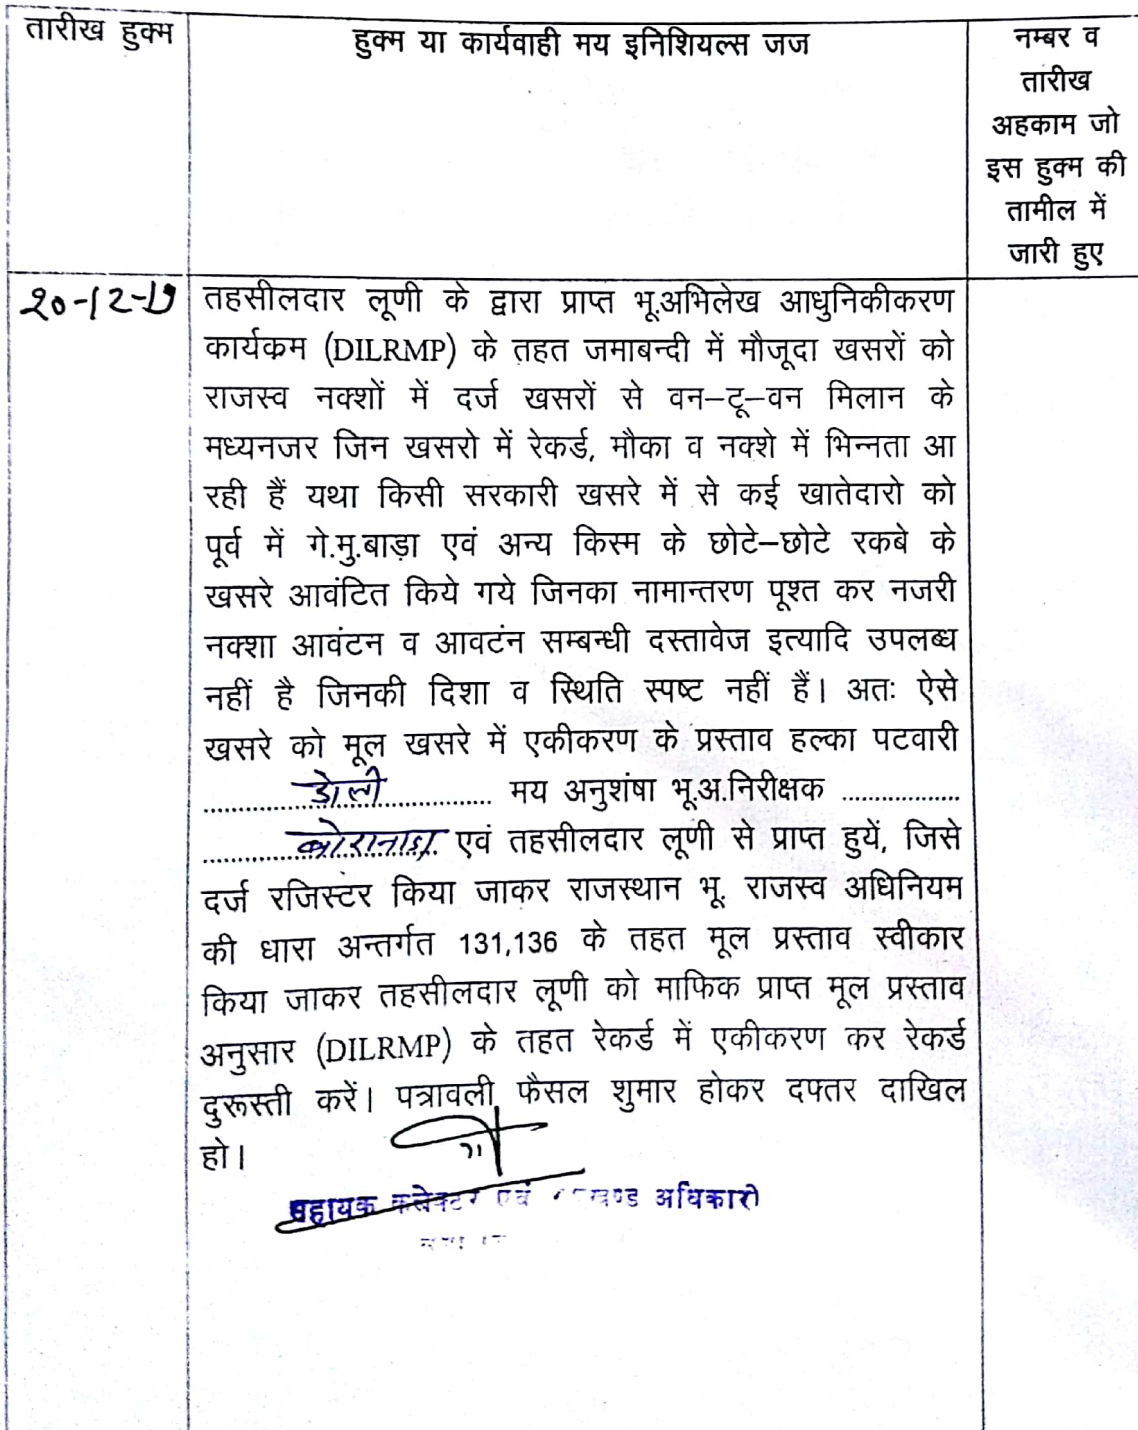 तारीख हुक्म
हुक्म या कार्यवाही मय इनिशियल्स जज
नम्बर व
तारीख
अहकाम जो
इस हुक्म की
तामील में
जारी हुए
20-12-19
तहसीलदार लूणी के द्वारा प्राप्त भू.अभिलेख आधुनिकीकरण
कार्यकम (DILRMP) के तहत जमाबन्दी में मौजूदा खसरों को
राजस्व नक्शों में दर्ज खसरों से वन–टू–वन मिलान के
मध्यनजर जिन खसरो में रेकर्ड, मौका व नक्शे में भिन्नता आ
रही हैं यथा किसी सरकारी खसरे में से कई खातेदारो को
पूर्व में गे.मु.बाड़ा एवं अन्य किस्म के छोटे–छोटे रकबे के
खसरे आवंटित किये गये जिनका नामान्तरण पूश्त कर नजरी
नक्शा आवंटन व आवटंन सम्बन्धी दस्तावेज इत्यादि उपलब्ध
नहीं है जिनकी दिशा व स्थिति स्पष्ट नहीं हैं। अतः ऐसे
खसरे को मूल खसरे में एकीकरण के प्रस्ताव हल्का पटवारी
डोली मय अनुशंषा भू.अ.निरीक्षक ..................
एवं तहसीलदार लूणी से प्राप्त हुयें, जिसे
दर्ज रजिस्टर किया जाकर राजस्थान भू. राजस्व अधिनियम
की धारा अन्तर्गत 131,136 के तहत मूल प्रस्ताव स्वीकार
किया जाकर तहसीलदार लूणी को माफिक प्राप्त मूल प्रस्ताव
अनुसार (DILRMP) के तहत रेकर्ड में एकीकरण कर रेकर्ड
दुरूस्ती करें। पत्रावली फैसल शुमार होकर दफ्तर दाखिल
हो।
सहायक कलेक्टर एवं अधिकारी